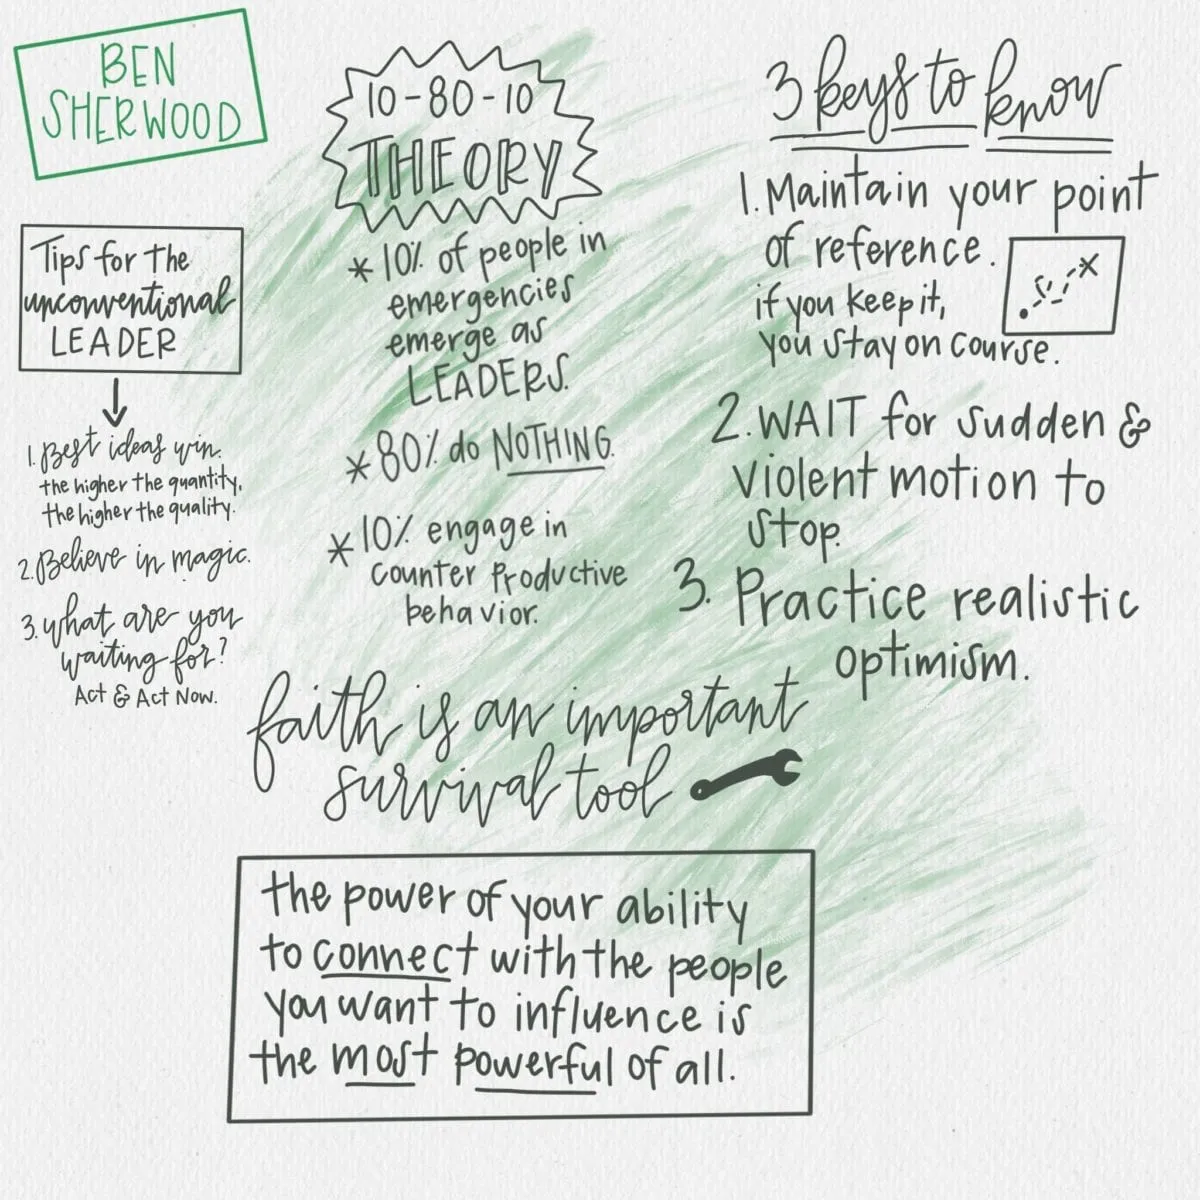 BEN
SHERWOOD
Tips for the
unconventional
LEADER
1. Best ideas win.
the higher the quantity,
the higher the quality.
2. Believe in magic.
3. what are you
waiting for?
Act & Act Now.
10-80-10
THEORY
* 10% of people in
emergencies
emerge as
LEADERS.
* 80% do NOTHING.
* 10% engage in
counter productive
behavior.
3 keys to know
1. Maintain your point
of reference.
if you keep it,
you stay on course.
2. WAIT for sudden &
violent motion to
stop.
3. Practice realistic
optimism.
faith is an important
survival tool
the power of your ability
to connect with the people
you want to influence is
the most powerful of all.